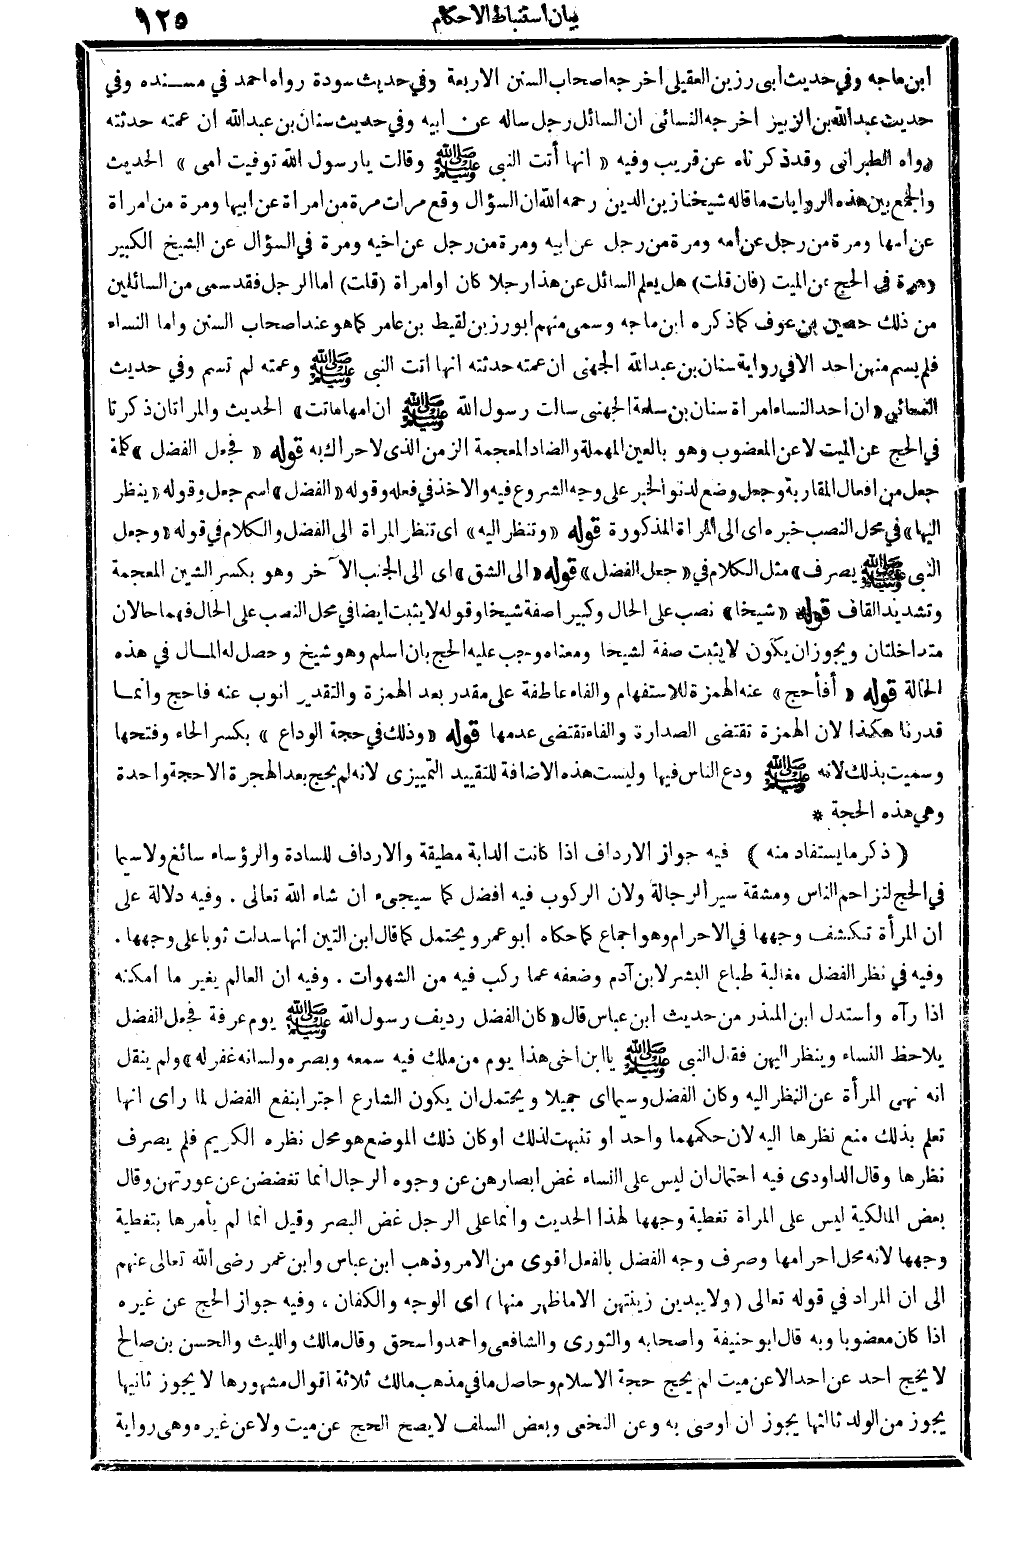 بيان استنباط الاحكام
١٢٥
ابن ماجه وفي حديث أبى رزين العقيلى اخرجه اصحاب السنن الاربعة وفي حديث سودة رواه احمد في مسنده وفي
حديث عبد الله بن الزبير اخرجه النسائى ان السائل رجل ساله عن ابيه وفي حديث سنان بن عبد الله ان عمته حدثته
رواه الطبرانى وقد ذكرناه عن قريب وفيه « انها أتت النبى ﷺ وقالت يارسول الله توفيت أمى » الحديث
والجمع بين هذه الروايات ما قاله شيخنا زين الدين رحمه الله ان السؤال وقع مرات مرة من امرأة عن ابيها ومرة من امرأة
عن امها ومرة من رجل عن أمه ومرة من رجل عن ابيه ومرة من رجل عن اخيه ومرة في السؤال عن الشيخ الكبير
ومرة في الحج عن الميت (فان قلت) هل يعلم السائل عن هذا رجلا كان او امرأة (قلت) اما الرجل فقد سمى من السائلين
من ذلك حصين بن عوف كما ذكره ابن ماجه وسمى منهم ابو رزين لقيط بن عامر كما هو عند اصحاب السنن واما النساء
فلم يسم منهن احد الا في رواية سنان بن عبد الله الجهنى ان عمته حدثته انها اتت النبى ﷺ وعمته لم تسم وفي حديث
النسائى « ان احد النساء امرأة سنان بن سلمة الجهنى سالت رسول الله ﷺ ان امها ماتت » الحديث والمرأتان ذكرتا
في الحج عن الميت لا عن المعضوب وهو بالعين المهملة والضاد المعجمة الزمن الذى لا حراك به قوله « فجعل الفضل » كلمة
جعل من افعال المقاربة وجعل وضع لدنو الخبر على وجه الشروع فيه والاخذ في فعله وقوله « الفضل » اسم جعل وقوله « ينظر
اليها » في محل النصب خبره اى الى المرأة المذكورة قوله « وتنظر اليه » اى تنظر المرأة الى الفضل والكلام في قوله « وجعل
النبى ﷺ يصرف » مثل الكلام في « جعل الفضل » قوله « الى الشق » اى الى الجنب الآخر وهو بكسر الشين المعجمة
وتشديد القاف قوله « شيخا » نصب على الحال وكبيرا صفة شيخا وقوله لا يثبت ايضا في محل النصب على الحال فهما حالان
متداخلتان ويجوز ان يكون لا يثبت صفة لشيخا ومعناه وجب عليه الحج بان اسلم وهو شيخ وحصل له المال في هذه
الحالة قوله « أفأحج » عنه الهمزة للاستفهام والفاء عاطفة على مقدر بعد الهمزة والتقدير انوب عنه فاحج وانما
قدرنا هكذا لان الهمزة تقتضى الصدارة والفاء تقتضى عدمها قوله « وذلك في حجة الوداع » بكسر الحاء وفتحها
وسميت بذلك لانه ﷺ ودع الناس فيها وليست هذه الاضافة للتقييد التمييزى لانه لم يحج بعد الهجرة الا حجة واحدة
وهي هذه الحجة *
( ذكر ما يستفاد منه ) فيه جواز الارداف اذا كانت الدابة مطيقة والارداف للسادة والرؤساء سائغ ولا سيما
في الحج لتزاحم الناس ومشقة سير الرجالة ولان الركوب فيه افضل كما سيجىء ان شاء الله تعالى . وفيه دلالة على
ان المرأة تكشف وجهها في الاحرام وهو اجماع كما حكاه ابو عمر ويحتمل كما قال ابن التين انها سدلت ثوبا على وجهها .
وفيه في نظر الفضل مغالبة طباع البشر لابن آدم وضعفه عما ركب فيه من الشهوات . وفيه ان العالم يغير ما امكنه
اذا رآه واستدل ابن المنذر من حديث ابن عباس قال « كان الفضل رديف رسول الله ﷺ يوم عرفة فجعل الفضل
يلاحظ النساء وينظر اليهن فقال النبى ﷺ يا ابن اخى هذا يوم من ملك فيه سمعه وبصره ولسانه غفر له » ولم ينقل
انه نهى المرأة عن النظر اليه وكان الفضل وسيما اى جميلا ويحتمل ان يكون الشارع اجتزا بنفع الفضل لما رأى انها
تعلم بذلك منع نظرها اليه لان حكمهما واحد او تنبهت لذلك او كان ذلك الموضع هو محل نظره الكريم فلم يصرف
نظرها وقال الداودى فيه احتمال ان ليس على النساء غض ابصارهن عن وجوه الرجال انما تغضضن عن عورتهن وقال
بعض المالكية ليس على المرأة تغطية وجهها لهذا الحديث وانما على الرجل غض البصر وقيل انما لم يأمرها بتغطية
وجهها لانه محل احرامها وصرف وجه الفضل بالفعل اقوى من الامر وذهب ابن عباس وابن عمر رضى الله تعالى عنهم
الى ان المراد في قوله تعالى ( ولا يبدين زينتهن الا ما ظهر منها ) اى الوجه والكفان ، وفيه جواز الحج عن غيره
اذا كان معضوبا وبه قال ابو حنيفة واصحابه والثورى والشافعى واحمد واسحق وقال مالك والليث والحسن بن صالح
لا يحج احد عن احد الا عن ميت لم يحج حجة الاسلام وحاصل ما في مذهب مالك ثلاثة اقوال مشهورها لا يجوز ثانيها
يجوز من الولد ثالثها يجوز ان اوصى به وعن النخعى وبعض السلف لا يصح الحج عن ميت ولا عن غيره وهى رواية